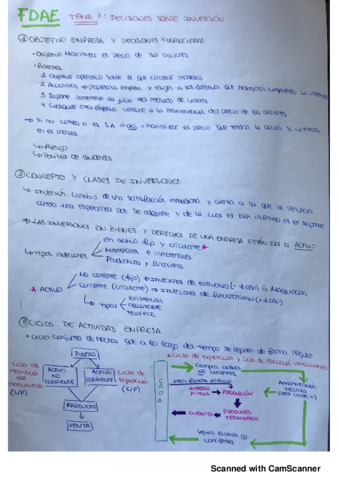 FDAE TEMA 7: DECISIONES SOBRE INVERSIÓN
① OBJETIVO EMPRESA Y DECISIONES FINANCIERAS
• Objetivo: Maximizar el precio de las acciones
• Razones
1 Objetivo operativo sobre el que construir modelos
2 Accionistas → propietarios empresa y exigen a los directivos que
3 Supone someterse al juicio del mercado de valores
4 Cualquier otro objetivo conduce a la maximización del precio de las acciones
→ Si no cotiza o es S.A → maximizar el precio que tendría la acción si cotizara
en el mercado
↳ Riesgo
↳ Política de dividendos
② CONCEPTO Y CLASES DE INVERSIONES
→ Inversión: Cambio de una satisfacción inmediata y cierta a la que se renuncia
contra una esperanza que se adquiere y de la cual el bien invertido es el soporte
→ LAS INVERSIONES EN BIENES Y DERECHOS DE UNA EMPRESA ESTÁN EN EL ACTIVO
en activo fijo y circulante *
↳ Tipos inversiones Materiales e inmateriales
Productivas y financieras
No corriente (fijo) → Inversiones de estructura (+1 año) Ej Maquinaria
* ACTIVO Corriente (circulante) → Inversiones de funcionamiento (-1 año)
↳ Tipos existencias
realizable
tesorería
③ CICLOS DE ACTIVIDAD EMPRESA
• Ciclo: Conjunto de hechos que a lo largo del tiempo se repiten de forma regular
DINERO
* Ciclo de Explotación y Ciclo de renovación inmovilizado
Ciclo de renovación del inmovilizado (L/P)
ACTIVO NO CORRIENTE
ACTIVO CORRIENTE
Ciclo de Explotación (C/P)
PRODUCTO
VENTA
CAJA
Compra activos no corrientes
MATERIAS PRIMAS → PRODUCCIÓN
CLIENTES
PRODUCTOS TERMINADOS
Amortización técnica
Venta activos no corrientes
Scanned with CamScanner